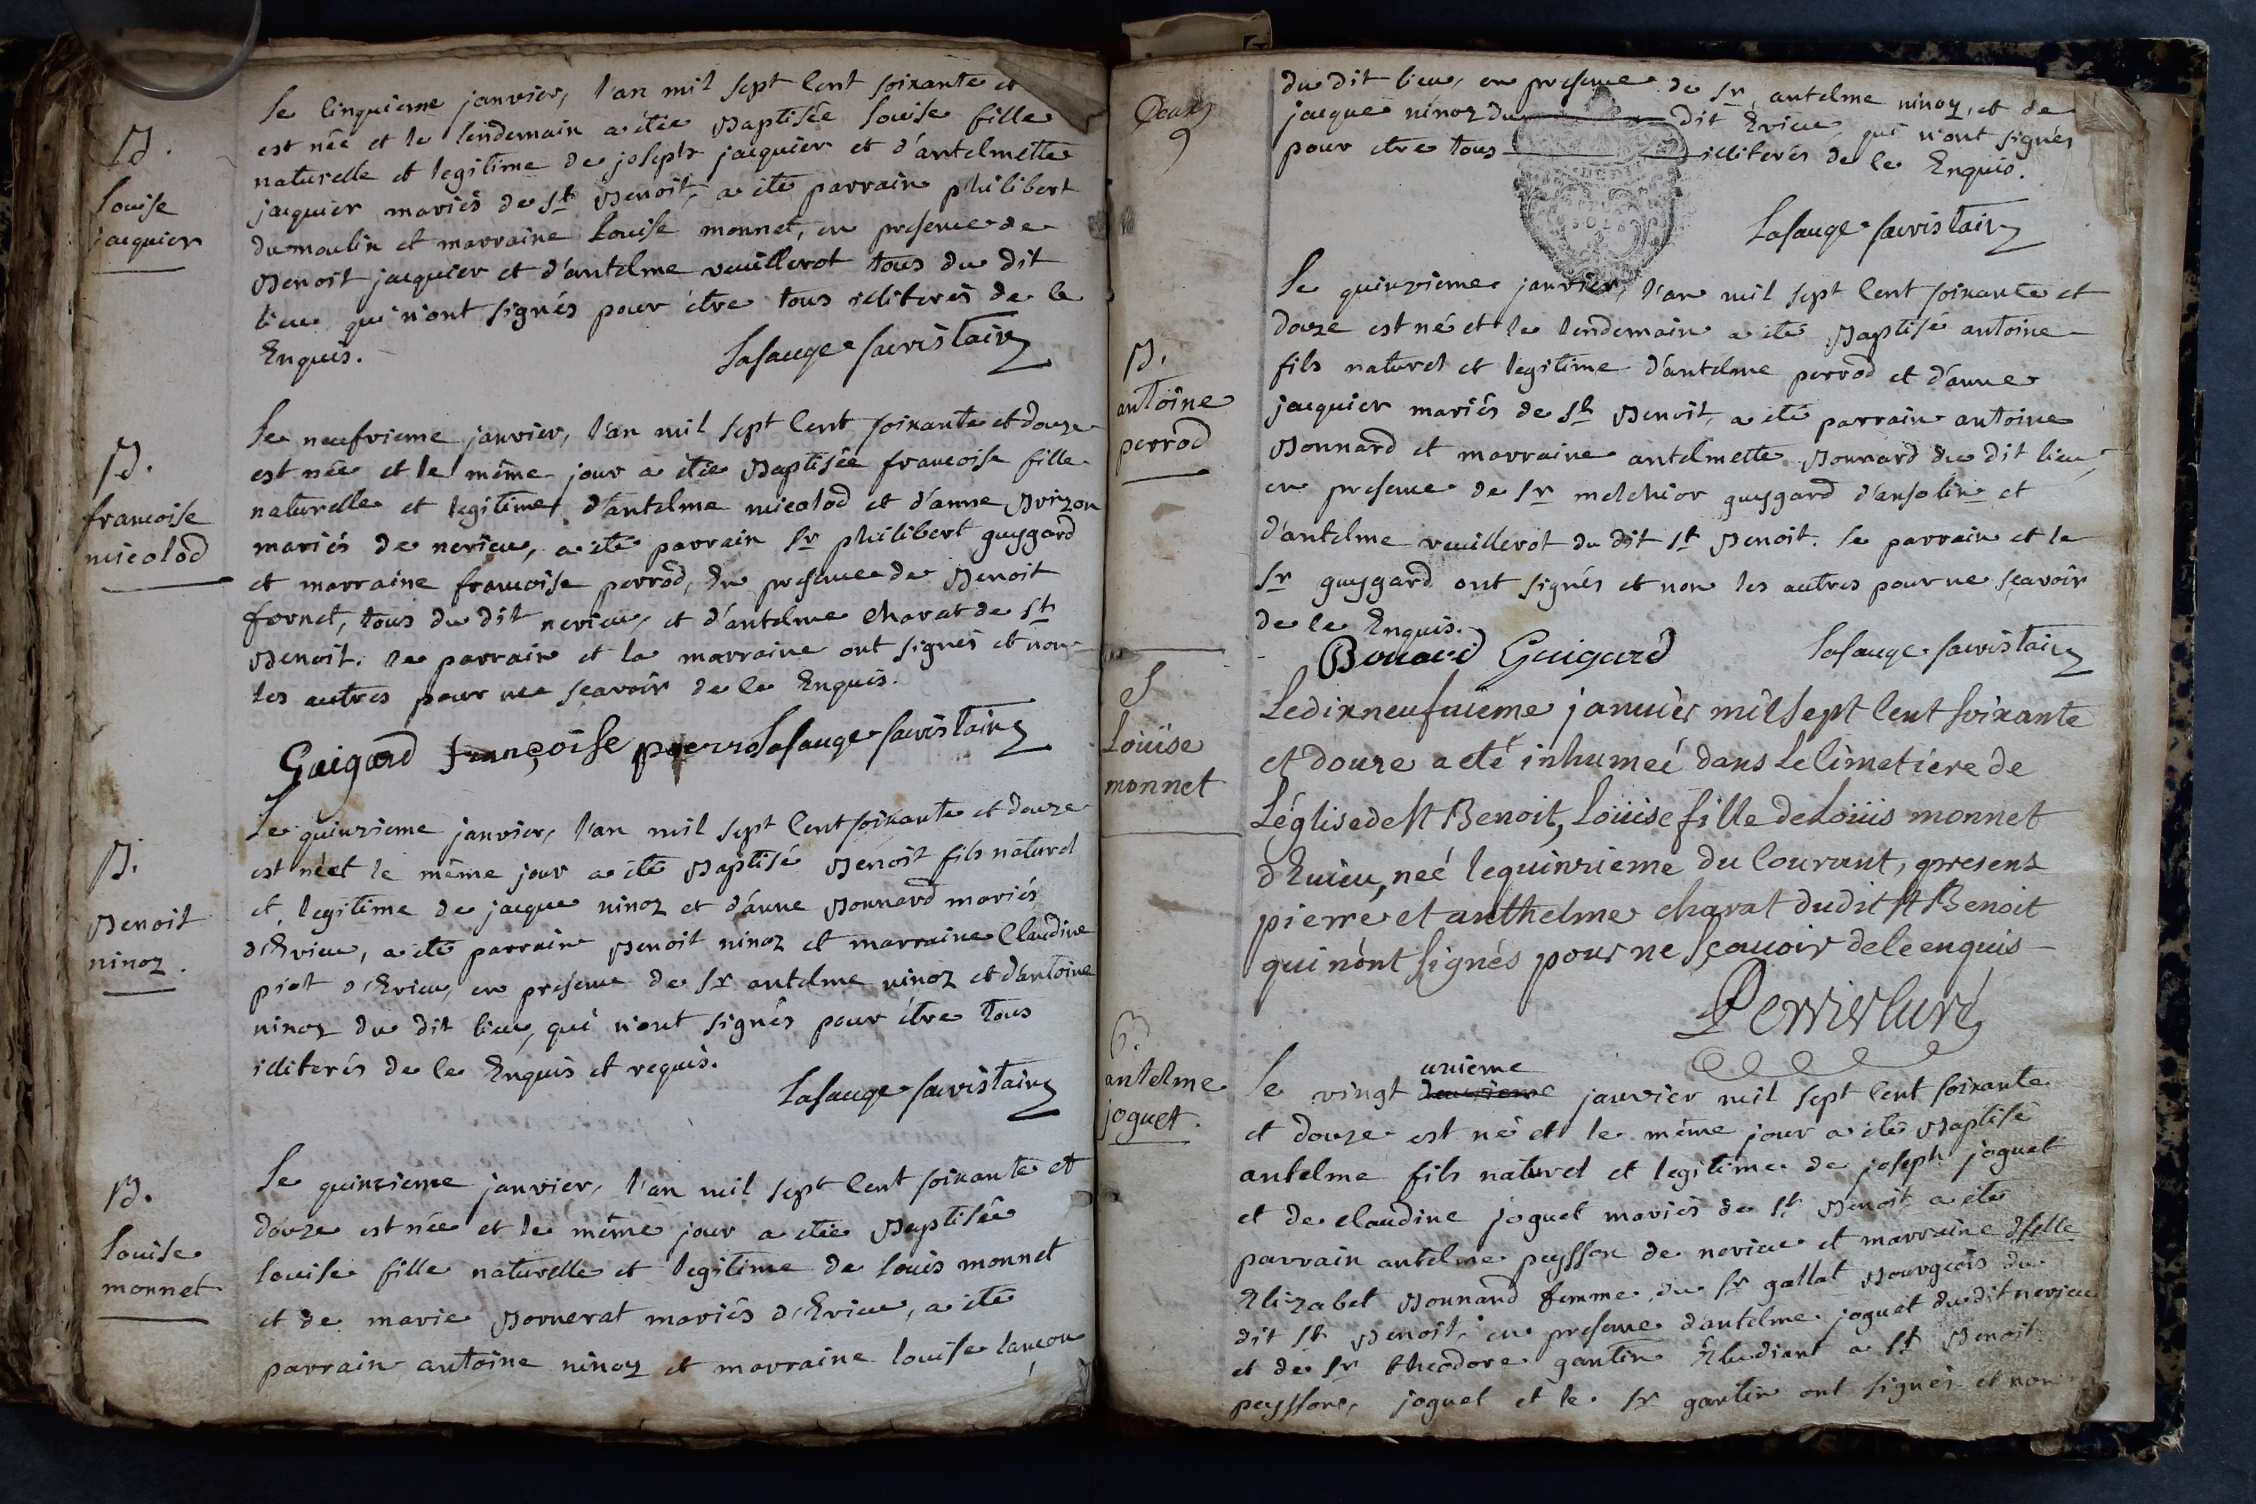 B.
Louise
jacquier
Le Cinquieme janvier, l'an mil sept Cent soixante et
est née et le lendemain a étée Baptisée Louise fille
naturelle et legitime de joseph jacquier et d'antelmette
jacquier mariés de St Benoit, a été parrain philibert
dumoulin et marraine Louise monnet, en presence de
Benoit jacquier et d'antelme vuillerot tous du dit
lieu qui n'ont signés pour être tous illiterés de ce
Enquis.
Lasauge sacristain
B.
francoise
micolod
Le neufvieme janvier, l'an mil sept Cent soixante et douze
est née et le même jour a étée Baptisée francoise fille
naturelle et legitime d'antelme micolod et d'anne Brizon
mariés de nerieu, a été parrain Sr philibert guygard
et marraine francoise perrod, En presence de Benoit
fornet, tous du dit nerieu, et d'antelme charat de St
Benoit. le parrain et la marraine ont signés et non
les autres pour ne sçavoir de ce Enquis.
Guigard françoise perro Lasauge sacristain
B.
Benoit
ninoz
Le quinzieme janvier, l'an mil sept Cent soixante et douze
est né et le même jour a été Baptisé Benoit fils naturel
et legitime de jacque ninoz et d'anne Bonnard mariés
d'Evieu, a été parrain Benoit ninoz et marraine Claudine
piot d'Evieu, en presence de Sr antelme ninoz et d'antoine
ninoz du dit lieu, qui n'ont signés pour être tous
illiterés de ce Enquis et requis.
Lasauge sacristain
B.
Louise
monnet
Le quinzieme janvier, l'an mil sept Cent soixante et
douze est née et le même jour a étée Baptisée
Louise fille naturelle et legitime de Louis monnet
et de marie Bornerat mariés d'Evieu, a été
parrain antoine ninoz et marraine Louise lançon
Deux
9
du dit lieu, en presence de Sr antelme ninoz, et de
jacque ninoz du dit Evieu, qui n'ont signés
pour etre tous illiterés de ce Enquis.
Lasauge sacristain
B.
antoine
perrod
Le quinzieme janvier, l'an mil sept Cent soixante et
douze est né et le lendemain a été Baptisé antoine
fils naturel et legitime d'antelme perrod et d'anne
jacquier mariés de St Benoit, a été parrain antoine
Bonnard et marraine antelmette Bonnard du dit lieu,
en presence de Sr melchior guygard d'ansolin et
d'antelme vuillerot du dit St Benoit. le parrain et le
Sr guygard ont signés et non les autres pour ne sçavoir
de ce Enquis.
Bonard Guigard Lasauge sacristain
S
Loüise
monnet
Le dix neufvieme janvier mil sept Cent soixante
et douze a eté inhumeé dans Le Cimetiére de
Léglise de St Benoit, Loüise fille de Loüis monnet
d'Evieu, neé le quinzieme du Courant, presens
pierre et anthelme charat dudit St Benoit
qui nont signés pour ne sçavoir de ce enquis
Perrier Curé
B.
antelme
joguet.
Le vingt deuxieme unieme janvier mil sept Cent soixante
et douze est né et le même jour a été Baptisé
antelme fils naturel et legitime de joseph joguet
et de claudine joguet mariés de St Benoit a été
parrain antelme peysson de nerieu et marraine dselle
Elizabet Bonnard femme du Sr gallat Bourgeois du
dit St Benoit, en presence d'antelme joguet du dit nerieu
et de Sr theodore gantin Etudiant a St Benoit
peysson, joguet et le Sr gantin ont signés et non